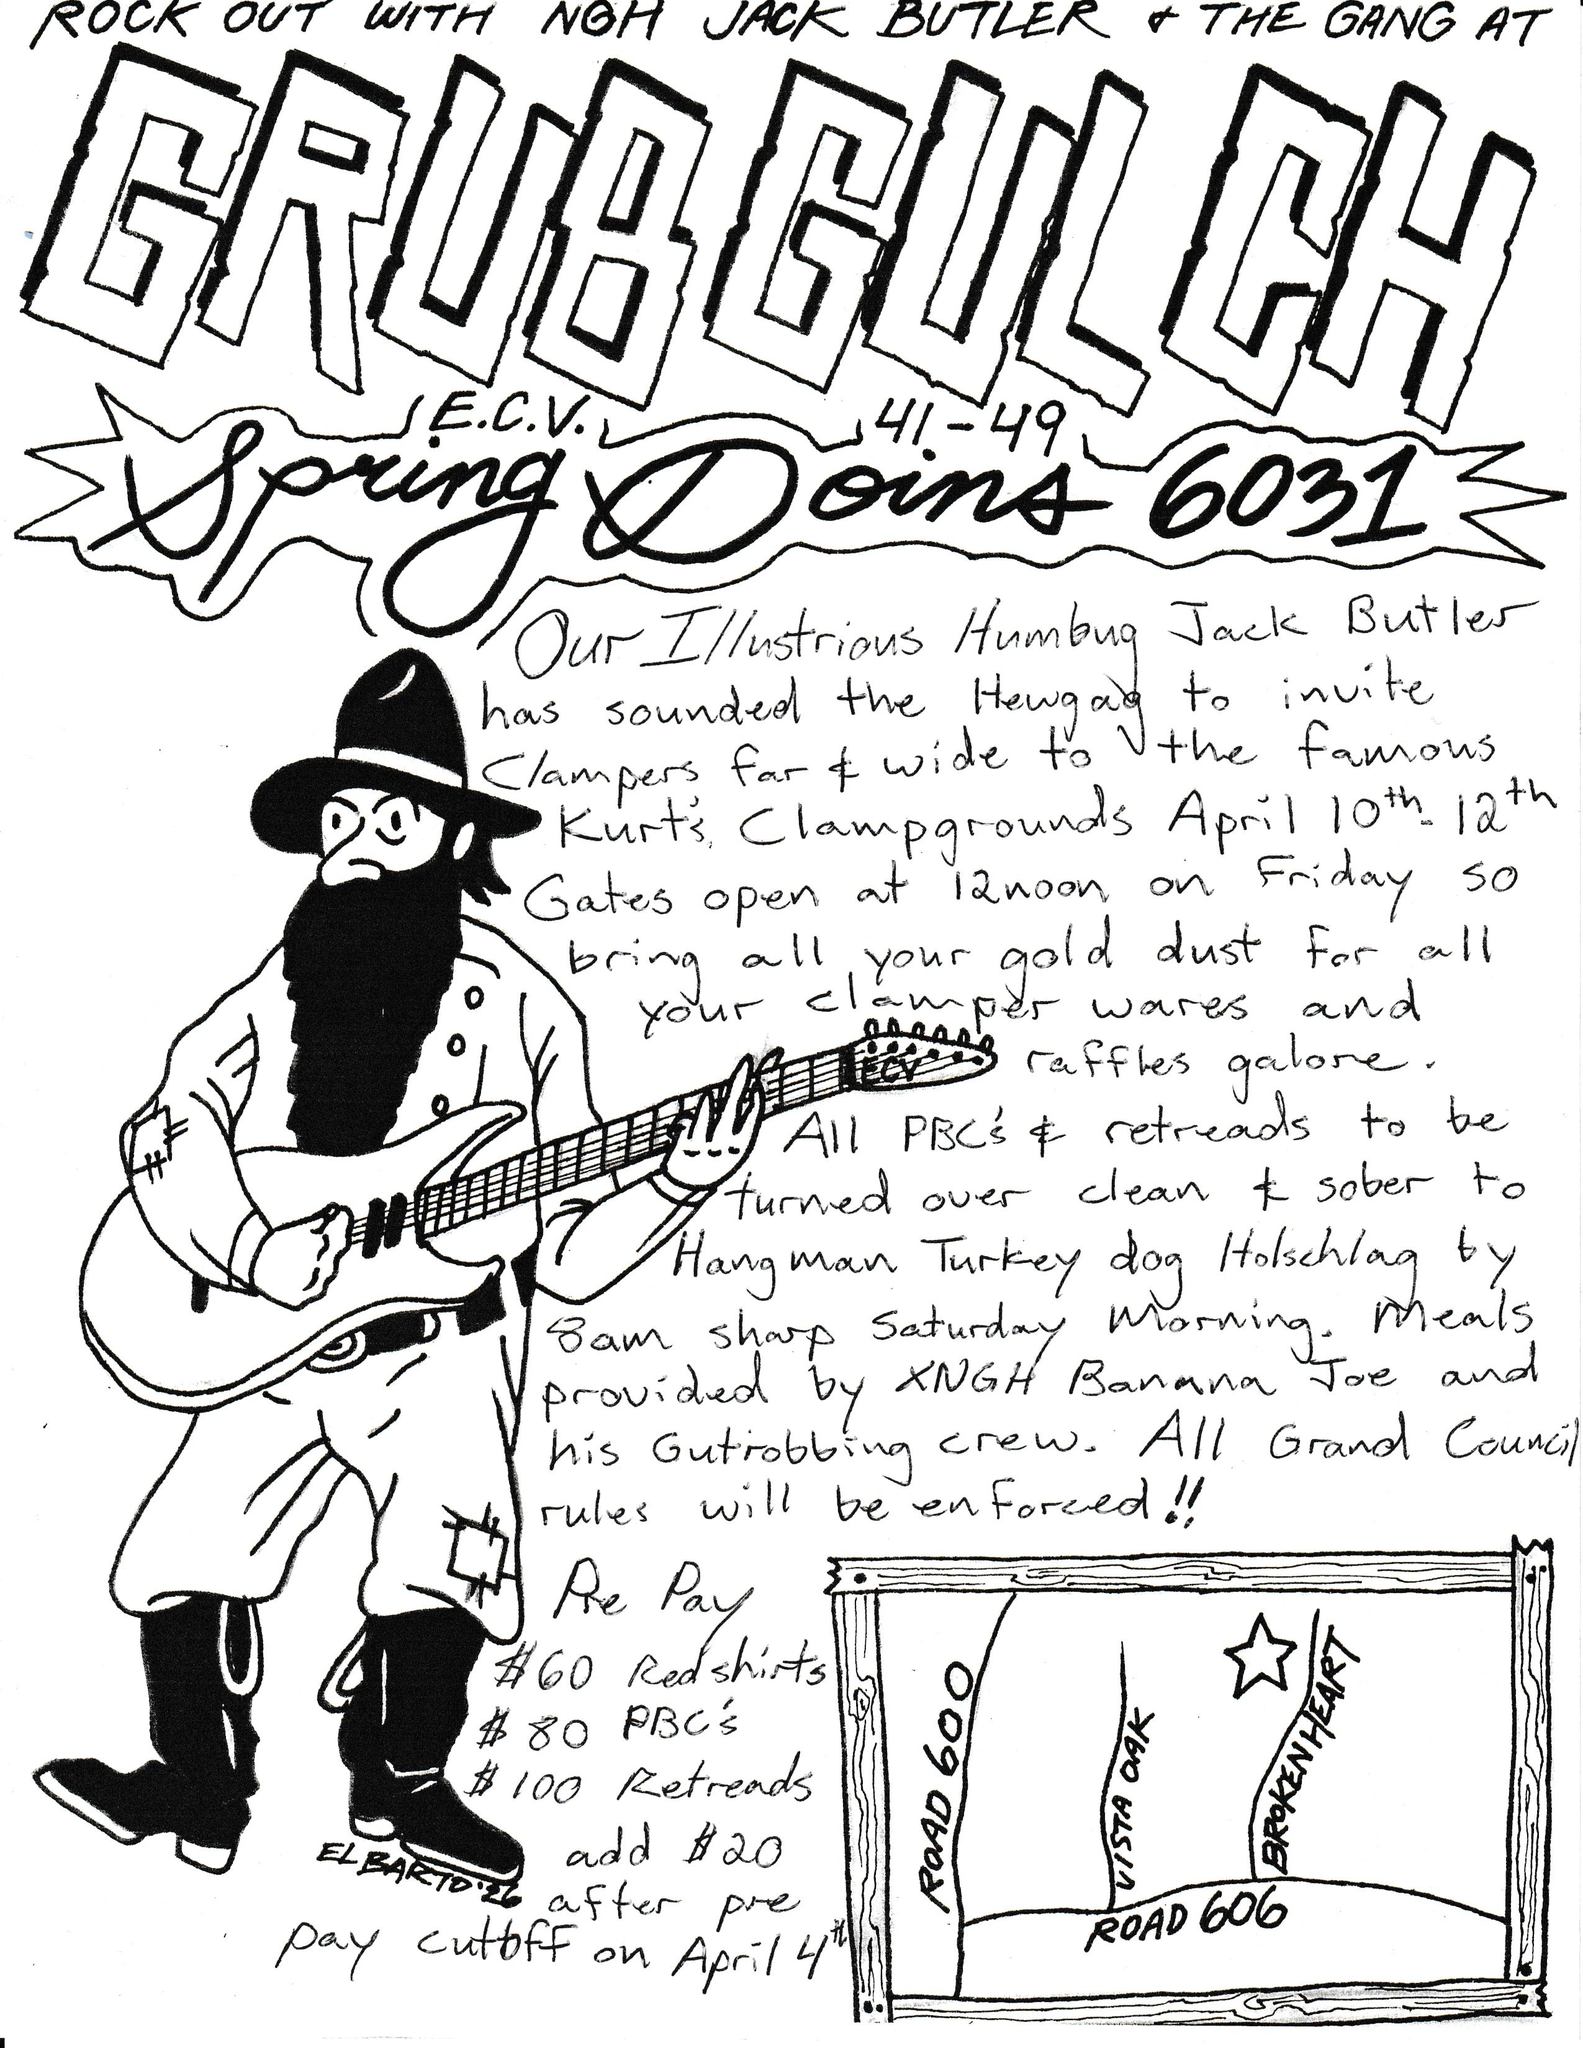 ROCK OUT WITH NGH JACK BUTLER & THE GANG AT
GRUB GULCH
E.C.V. 41-49
Spring Doins 6031
Our Illustrious Humbug Jack Butler
has sounded the Hewgag to invite
Clampers far & wide to the famous
Kurt's Clampgrounds April 10th-12th
Gates open at 12noon on Friday so
bring all your gold dust for all
your clamper wares and
raffles galore.
ECV
All PBC's & retreads to be
turned over clean & sober to
Hangman Turkey dog Holschlag by
8am sharp Saturday Morning. Meals
provided by XNGH Banana Joe and
his Gutrobbing crew. All Grand Council
rules will be enforced!!
Pre Pay
$60 Redshirts
$80 PBC's
$100 Retreads
add $20
after pre
pay cuttoff on April 4th
EL BARTO '26
ROAD 600
VISTA OAK
BROKEN HEART
ROAD 606